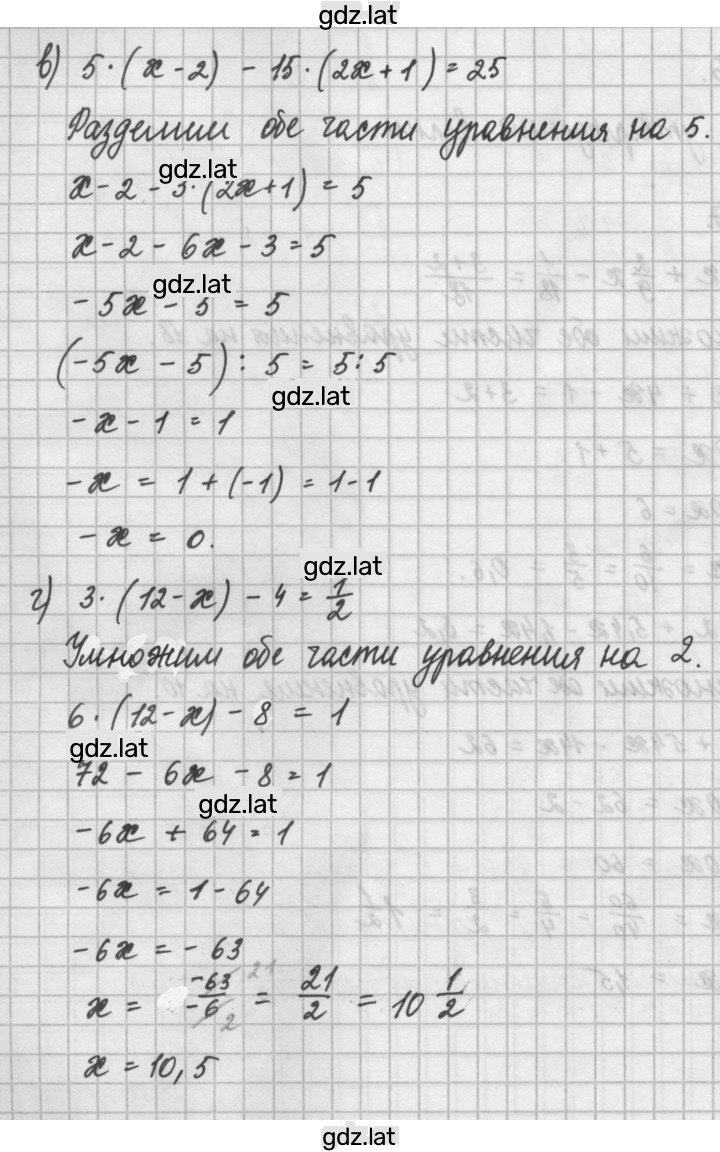 gdz.lat
в) 5·(x-2) - 15·(2x+1) = 25
Разделим обе части уравнения на 5.
gdz.lat
x-2-3·(2x+1) = 5
x-2-6x-3=5
gdz.lat
-5x-5 = 5
(-5x - 5) : 5 = 5:5
gdz.lat
-x-1 = 1
-x = 1+(-1) = 1-1
-x = 0.
gdz.lat
г) 3·(12-x) - 4 = 1/2
Умножим обе части уравнения на 2.
6·(12-x) - 8 = 1
gdz.lat
72 - 6x - 8 = 1
gdz.lat
-6x + 64 = 1
-6x = 1-64
-6x = -63
x = -63/-6 21 2 = 21/2 = 10 1/2
x = 10,5
gdz.lat